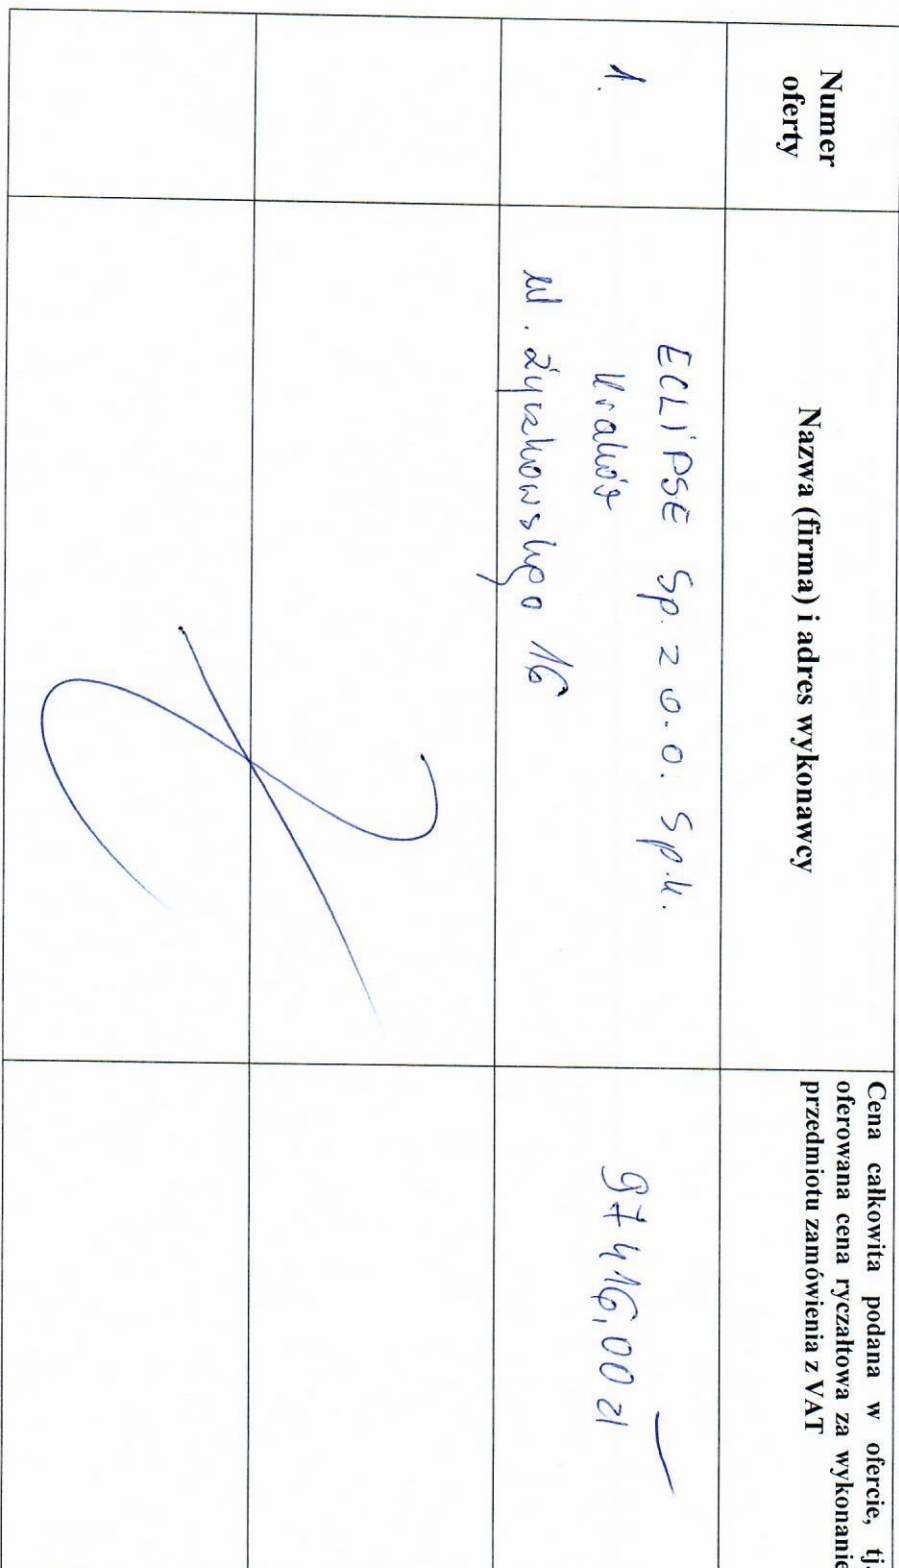 Numer
oferty
Nazwa (firma) i adres wykonawcy
Cena całkowita podana w ofercie, tj.
oferowana cena ryczałtowa za wykonanie
przedmiotu zamówienia z VAT
1.
ECLIPSE Sp. z o.o. Sp.k.
Kraków
ul. Życzkowskiego 16
97 416,00 zł